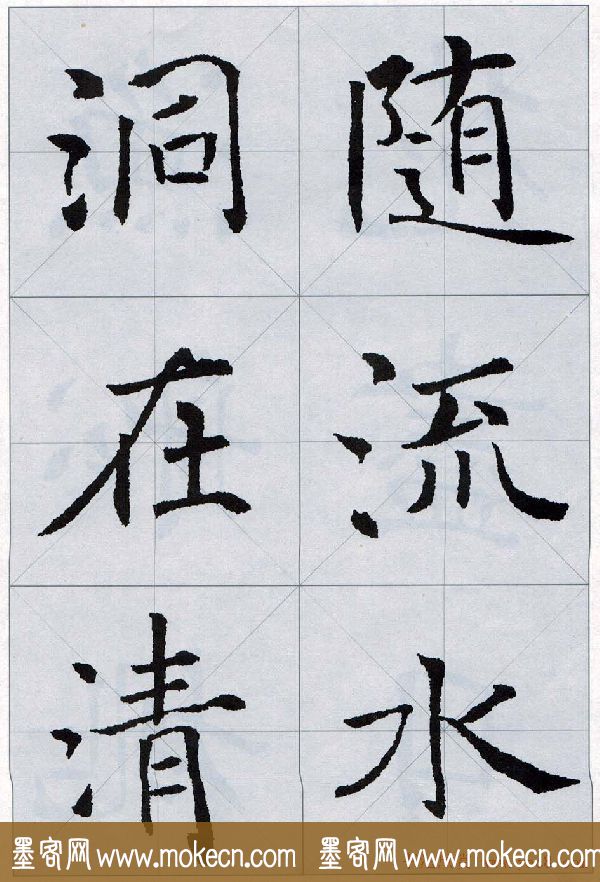 随流水
洞在清
墨客网 www.mokecn.com 墨客网 www.mokecn.com